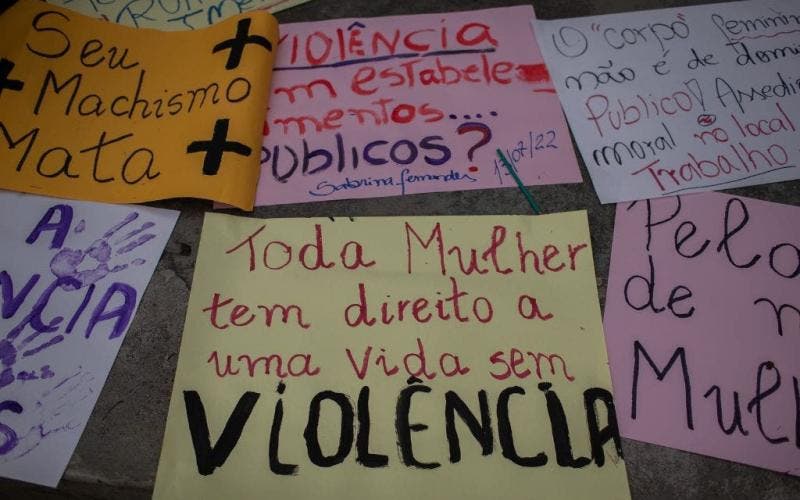 Seu
Machismo
Mata
VIOLÊNCIA
em estabele
cimentos....
PÚBLICOS?
Sabrina fernandes 13/07/22
O "corpo" feminino
não é de domí
Público! Assédio
moral no local
Trabalho
A
NCIA
S
Toda Mulher
tem direito a
uma vida sem
VIOLÊNCIA
Pelo
de
Mul